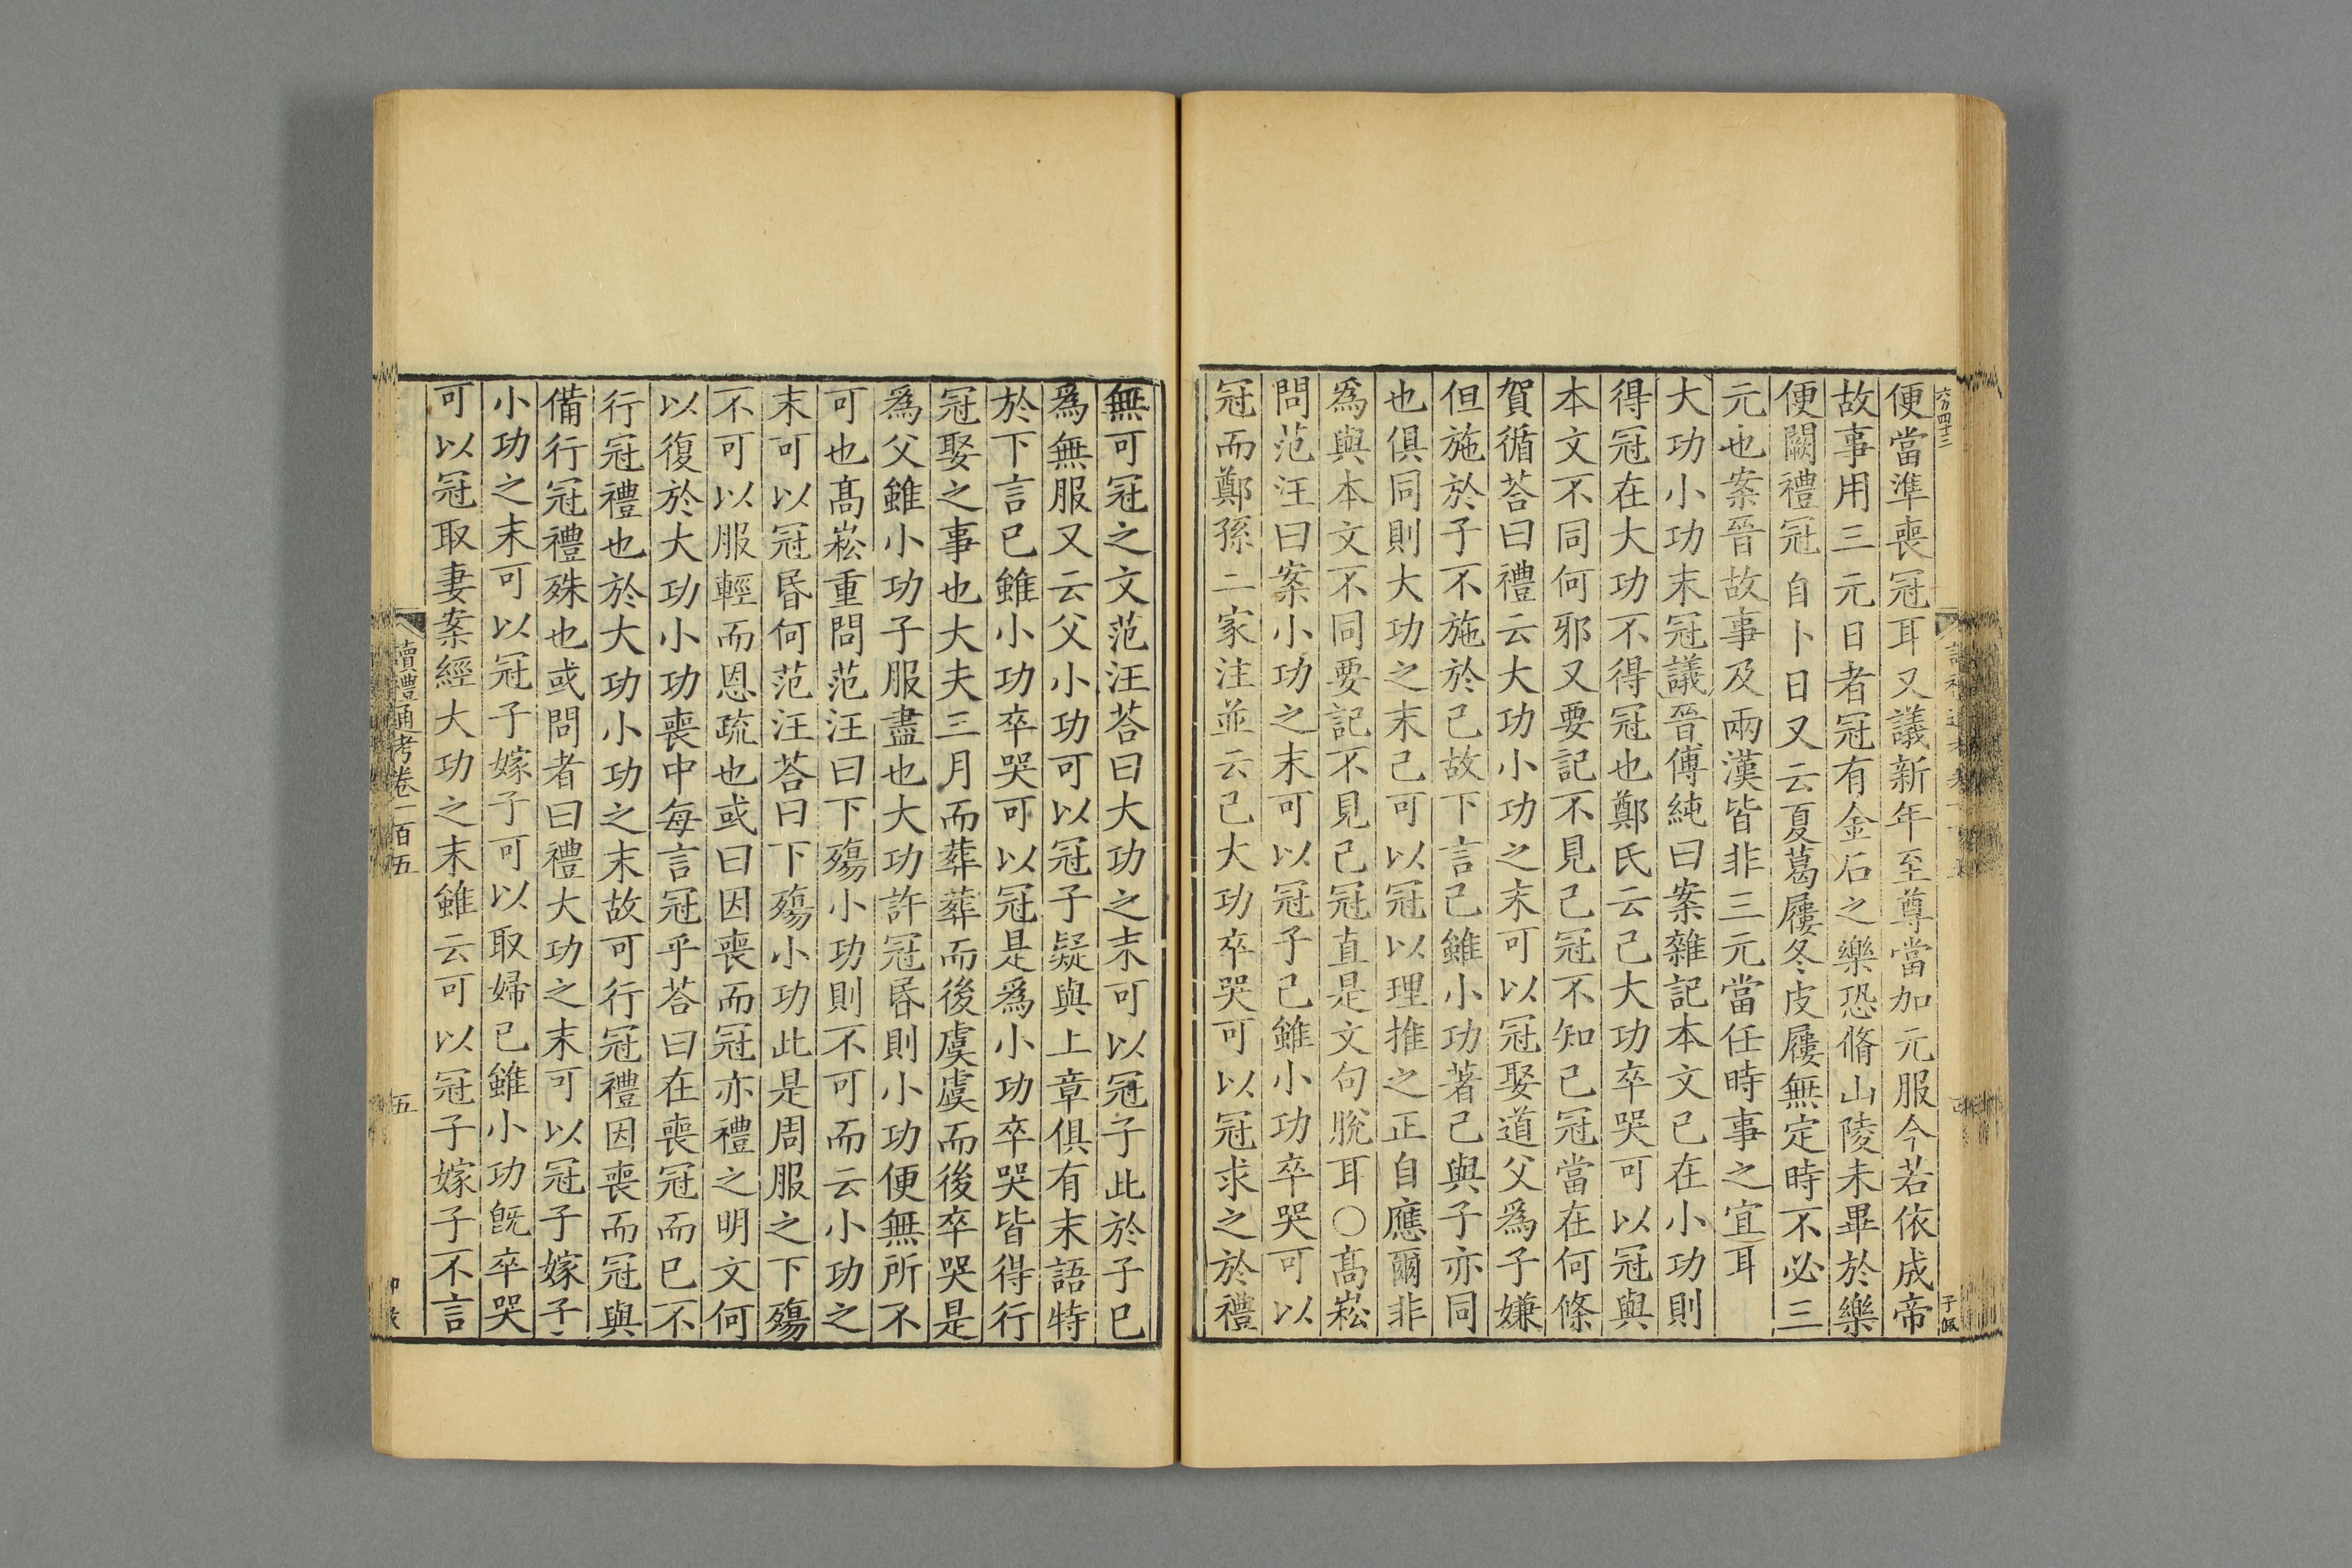 便當準喪冠耳又議新年至尊當加元服今若依成帝
故事用三元日者冠有金石之樂恐脩山陵未畢於樂
便闕禮冠自卜日又云夏葛屨冬皮屨無定時不必三
元也案晉故事及兩漢皆非三元當任時事之宜耳
大功小功末冠議晉傅純曰案雜記本文已在小功則
得冠在大功不得冠也鄭氏云己大功卒哭可以冠與
本文不同何邪又要記不見己冠不知己冠當在何條
賀循荅曰禮云大功小功之末可以冠娶道父為子嫌
但施於子不施於己故下言己雖小功著己與子亦同
也俱同則大功之末己可以冠以理推之正自應爾非
為與本文不同要記不見己冠直是文句脫耳○髙崧
問范汪曰案小功之末可以冠子己雖小功卒哭可以
冠而鄭孫二家注並云己大功卒哭可以冠求之於禮
無可冠之文范汪荅曰大功之末可以冠子此於子已
為無服又云父小功可以冠子疑與上章俱有末語特
於下言已雖小功卒哭可以冠是為小功卒哭皆得行
冠娶之事也大夫三月而葬葬而後虞虞而後卒哭是
為父雖小功子服盡也大功許冠昏則小功便無所不
可也髙崧重問范汪曰下殤小功則不可而云小功之
末可以冠昏何范汪荅曰下殤小功此是周服之下殤
不可以服輕而恩疏也或曰因喪而冠亦禮之明文何
以復於大功小功喪中每言冠乎荅曰在喪冠而已不
行冠禮也於大功小功之末故可行冠禮因喪而冠與
備行冠禮殊也或問者曰禮大功之末可以冠子嫁子
小功之末可以冠子嫁子可以取婦已雖小功旣卒哭
可以冠取妻案經大功之末雖云可以冠子嫁子不言
讀禮通考卷一百五
五